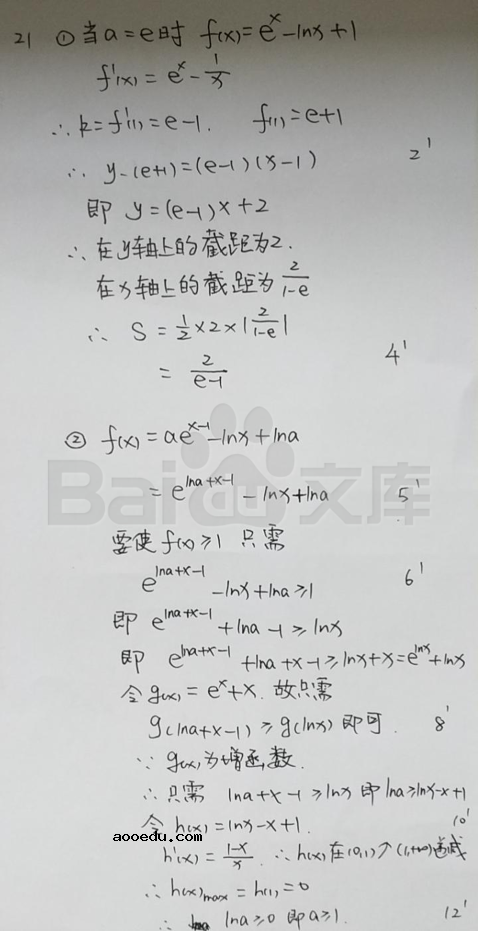 21 ① 当a=e时 f(x)=e^x-lnx+1
f'(x)=e^x-1/x
∴k=f'(1)=e-1. f(1)=e+1
∴ y-(e+1)=(e-1)(x-1) 2'
即 y=(e-1)x+2
∴在y轴上的截距为2.
在x轴上的截距为 2/(1-e)
∴ S=1/2×2×|2/(1-e)|
=2/(e-1) 4'
② f(x)=ae^(x-1)-lnx+lna
=e^(lna+x-1)-lnx+lna 5'
Bai 文库
要使f(x)≥1 只需
e^(lna+x-1)-lnx+lna≥1 6'
即 e^(lna+x-1)+lna-1≥lnx
即 e^(lna+x-1)+lna+x-1≥lnx+x=e^(lnx)+lnx
令g(x)=e^x+x. 故只需
g(lna+x-1)≥g(lnx)即可. 8'
∵ g(x)为增函数.
∴只需 lna+x-1≥lnx 即lna≥lnx-x+1
令h(x)=lnx-x+1. 10'
aooedu.com
h'(x)=(1-x)/x ∴h(x)在(0,1)↗(1,+∞)递减
∴h(x)max=h(1)=0
∴ lna≥0 即a≥1. 12'